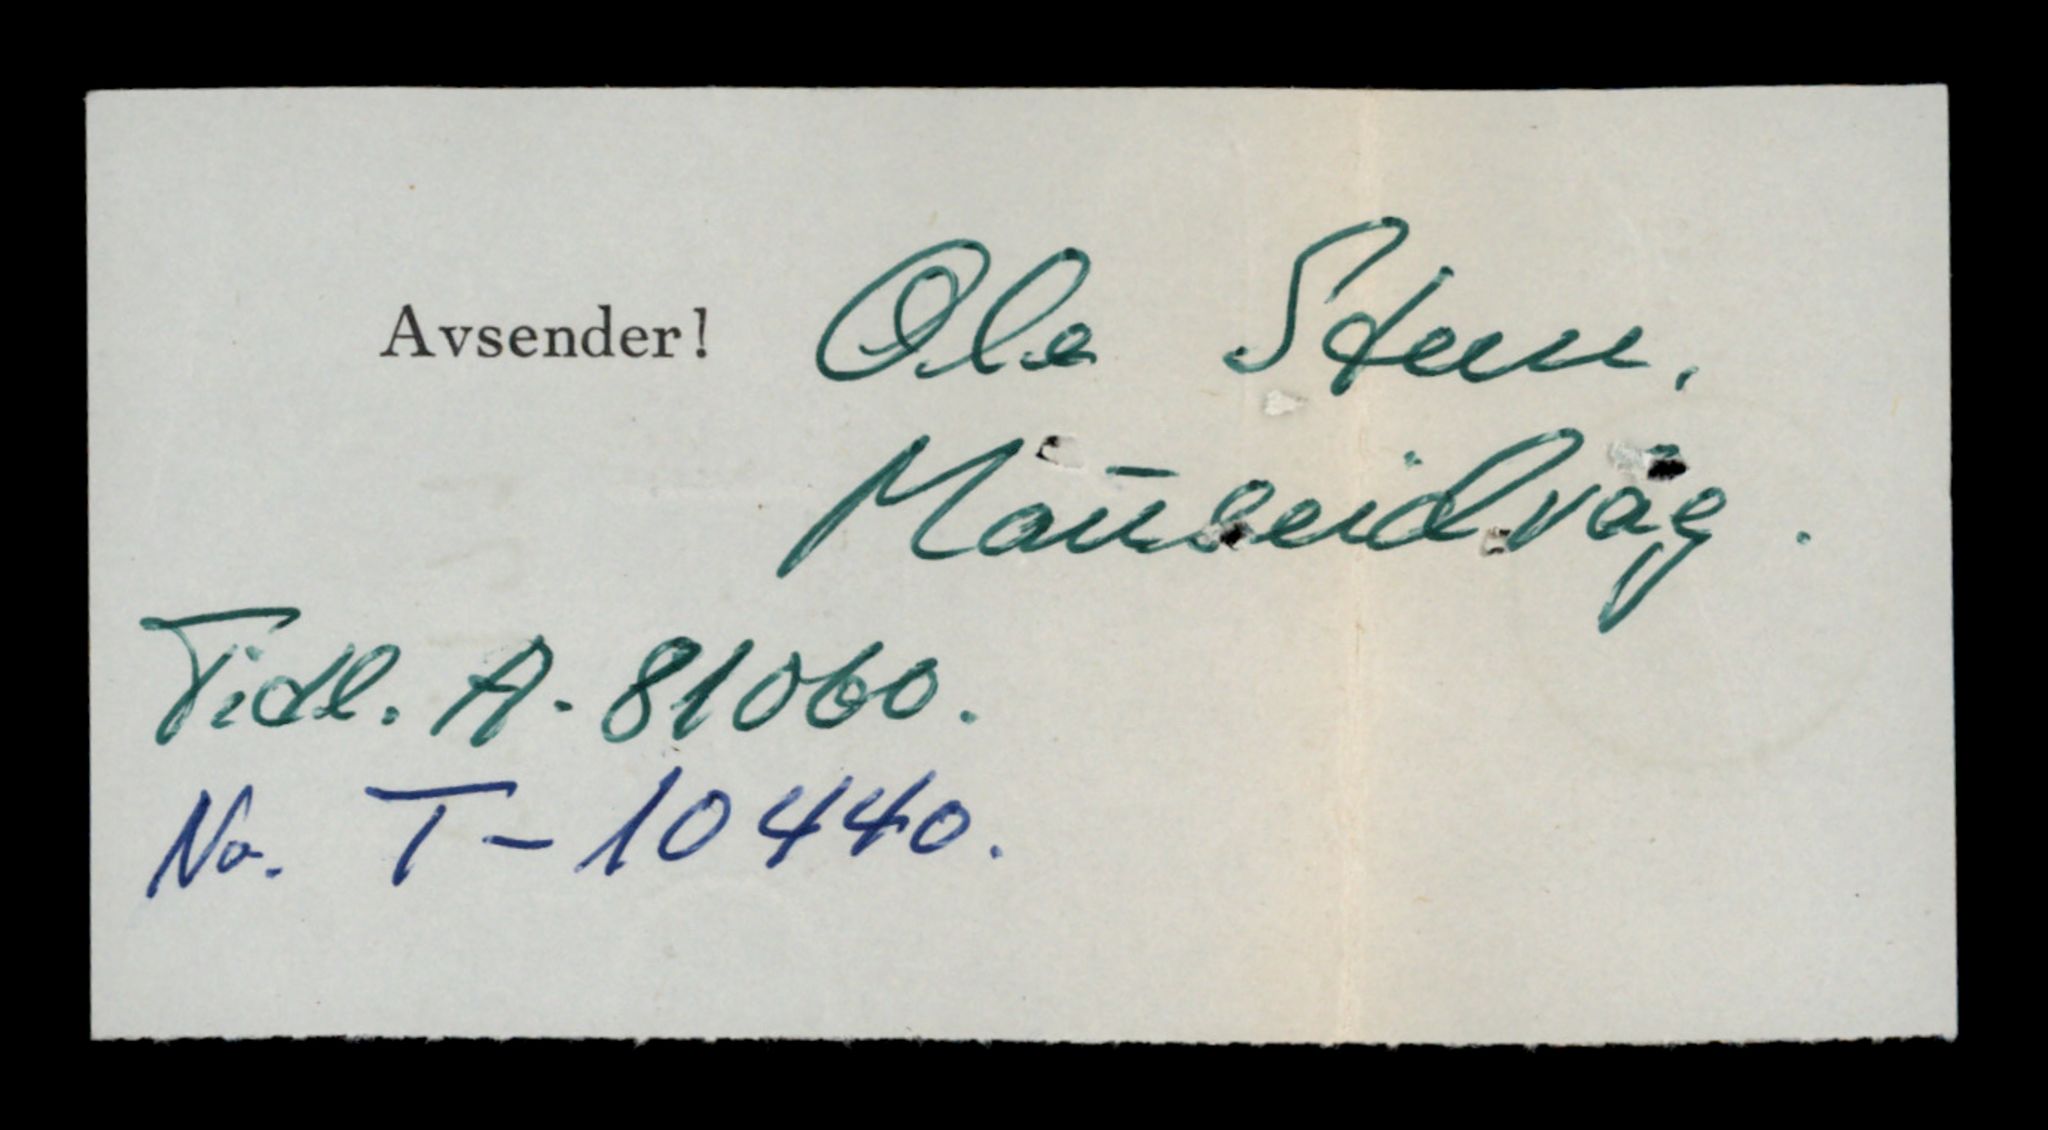 Avsender! Ole Steen.
Mauseidvåg.
Tidl. A-81060.
No. T-10440.